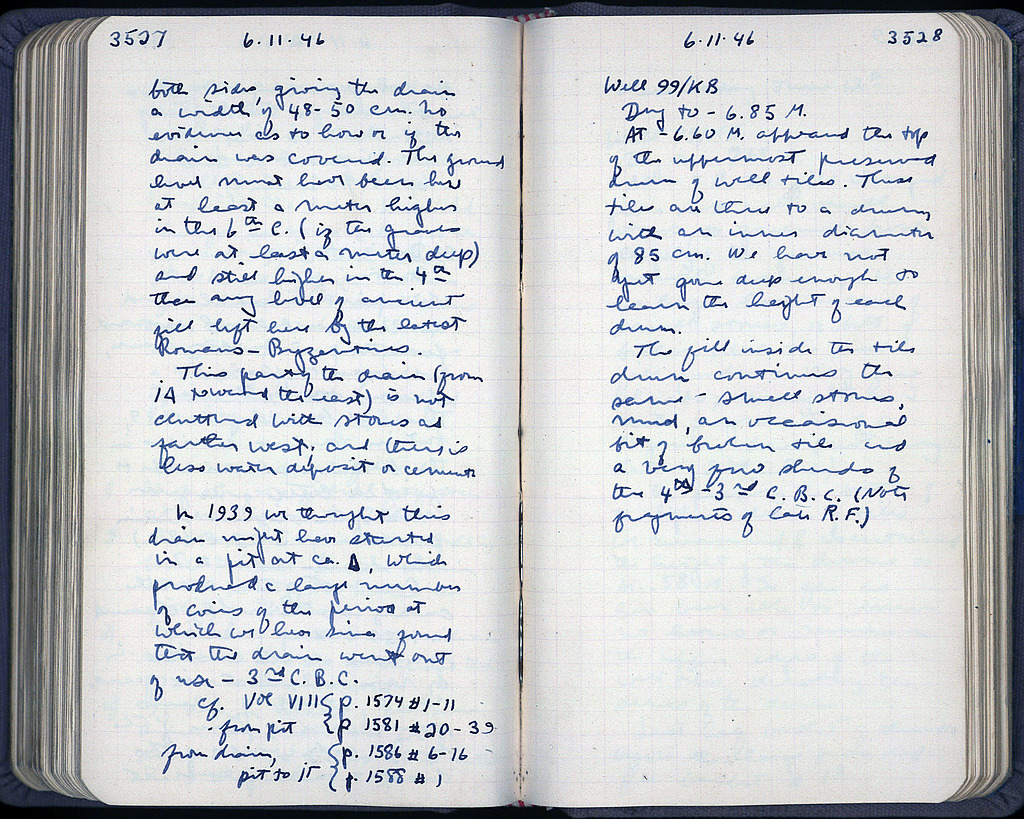 3527 6·11·46
both sides, giving the drain
a width of 48-50 cm. No
evidence as to how or if the
drain was covered. The ground
level must have been here
at least a meter higher
in the 6th C. (if the graves
were at least a meter deep)
and still higher in the 4th
than any level of ancient
fill left here by the latest
Romans - Byzantines.
This part of the drain (from
ΙΔ toward the east) is not
cluttered with stones as
farther west, and there is
less water deposit or cement
In 1939 we thought this
drain might have started
in a pit at ca. Δ, which
produced a large number
of coins of the period at
which we have since found
that the drain went out
of use - 3rd C. B.C.
cf. Vol VIII { p. 1574 #1-11
from pit { p 1581 #20-39
from drain, { p. 1586 #6-16
pit to { p. 1588 #1
6·11·46 3528
Well 99/ΚΒ
Dug to - 6.85 M.
At - 6.60 M. appeared the top
of the uppermost preserved
drum of well tiles. These
tiles are three to a drum
with an inner diameter
of 85 cm. We have not
yet gone deep enough to
learn the height of each
drum.
The fill inside the tile
drum continues the
same - small stones,
mud, an occasional
bit of broken tile and
a very few sherds of
the 4th-3rd C. B.C. (Note
fragments of late R.F.)